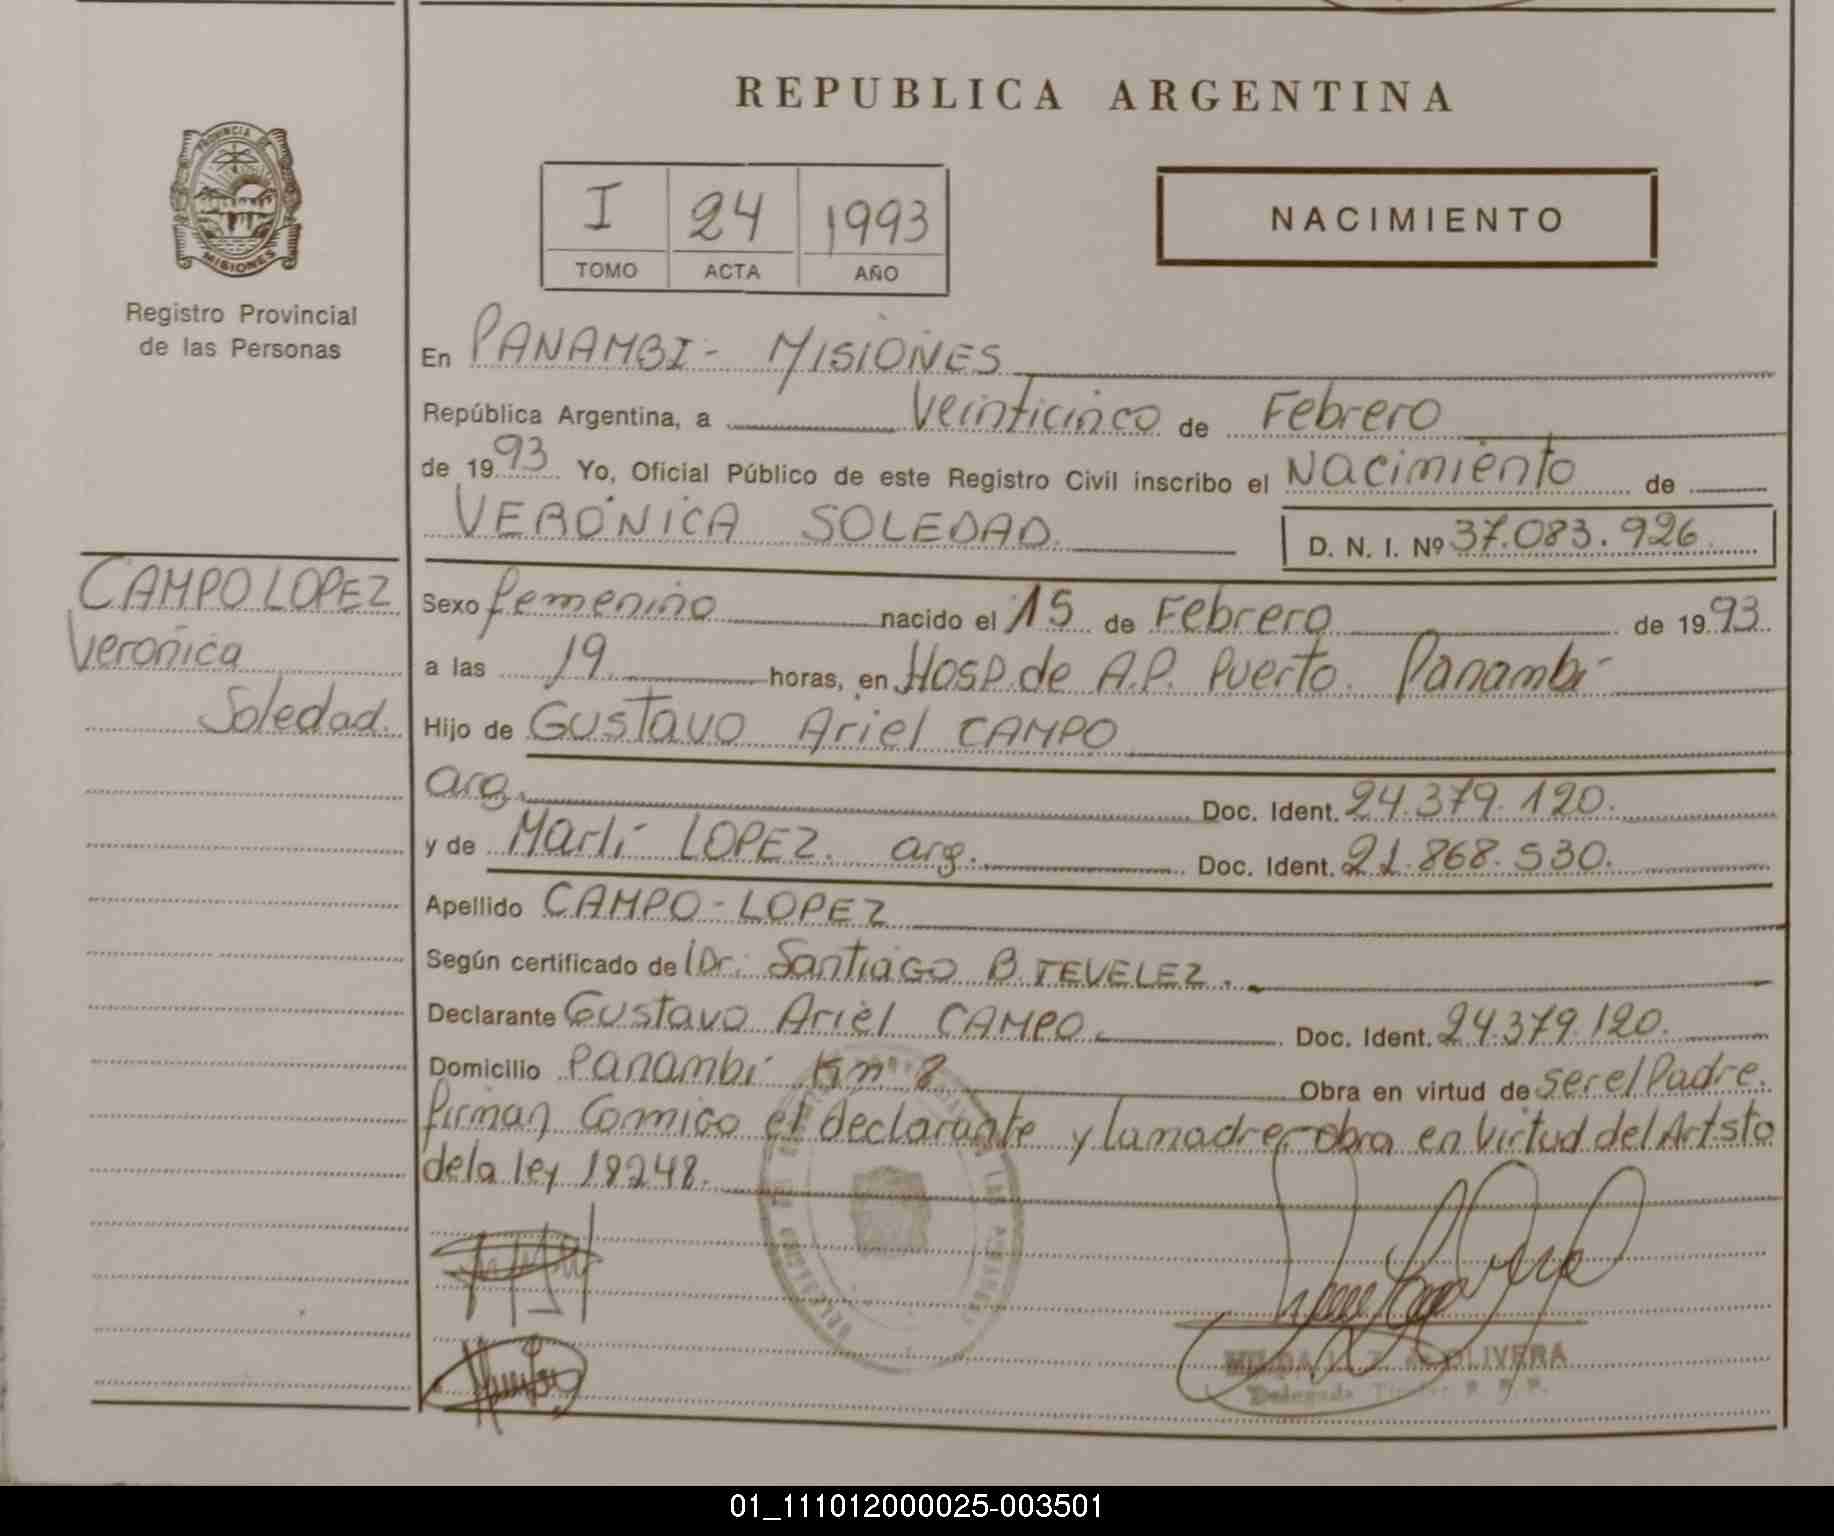 REPUBLICA ARGENTINA
PROVINCIA DE
MISIONES
Registro Provincial
de las Personas
I 24 1993
TOMO ACTA AÑO
NACIMIENTO
En PANAMBI - MISIONES
República Argentina, a Veinticinco de Febrero
de 1993 Yo, Oficial Público de este Registro Civil inscribo el Nacimiento de
VERÓNICA SOLEDAD.
D. N. I. Nº 37.083.926
CAMPO LOPEZ
Verónica
Soledad.
Sexo femenino nacido el 15 de Febrero de 1993
a las 19 horas, en Hosp. de A.P. Puerto Panambí
Hijo de Gustavo Ariel CAMPO
arg. Doc. Ident. 24.379.120.
y de Marlí LOPEZ. arg. Doc. Ident. 21.868.530.
Apellido CAMPO - LOPEZ
Según certificado de Dr. Santiago B. TEVELEZ.
Declarante Gustavo Ariel CAMPO. Doc. Ident. 24.379.120.
Domicilio Panambí Km 8 Obra en virtud de ser el Padre.
firman Conmigo el declarante y la madre obra en Virtud del Art. 5to
de la ley 18248.
OLIVERA
Delegada Titular R. P. P.
01_111012000025-003501